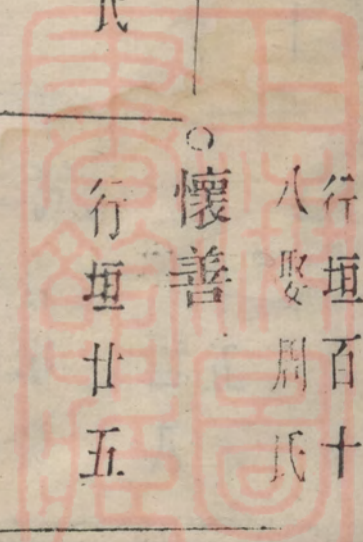 行垣百十
八娶周氏
○懷善
行垣廿五
氏